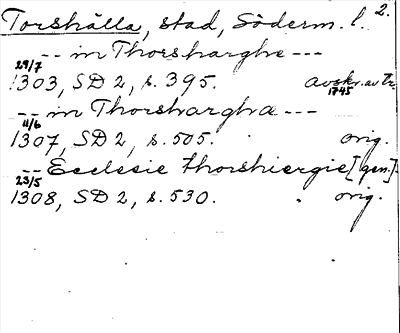 Torshälla, stad, Söderm. l. 2.
-- in Thorsharghe ---
29/7 1303, SD 2, s. 395. avskr. av Tr. 1745
-- in Thorshargha ---
11/6 1307, SD 2, s. 505. orig.
-- Ecclesie Thorshiergie [gen.]
23/5 1308, SD 2, s. 530. orig.